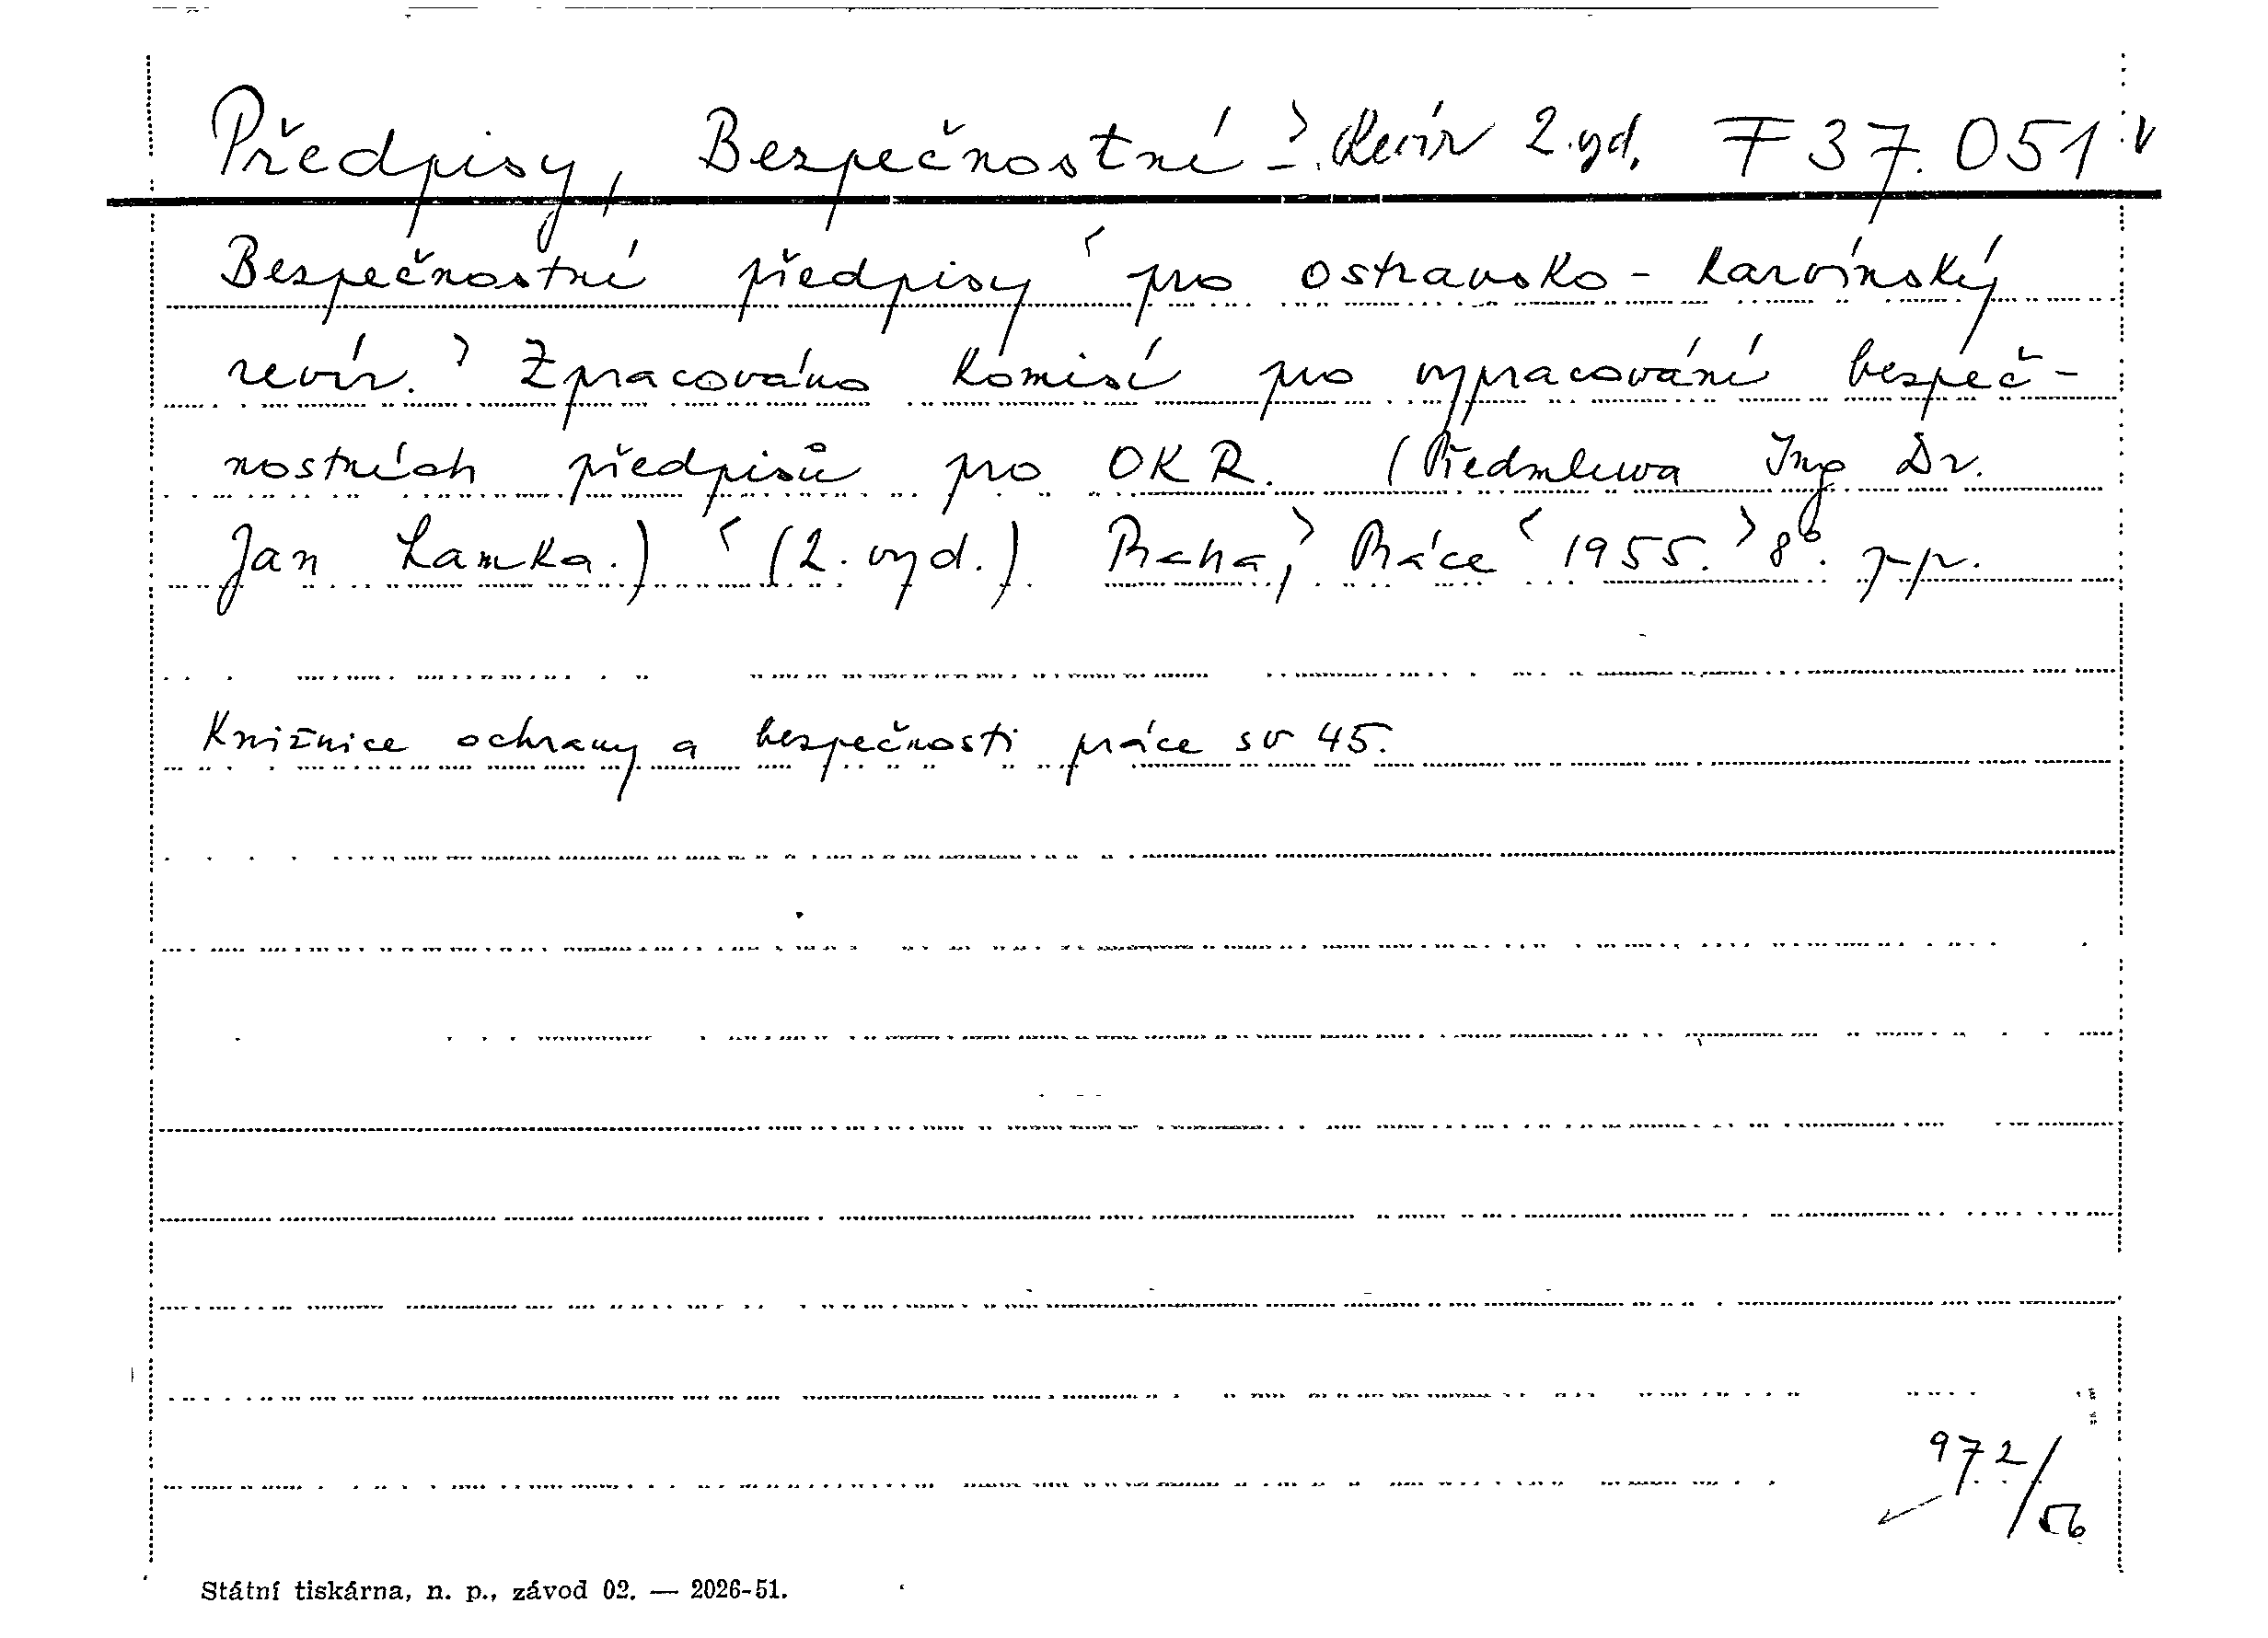 Předpisy, Bezpečnostní –. Revír 2.vyd. F 37.051
Bezpečnostní předpisy pro ostravsko-karvínský
revír. Zpracováno komisí pro vypracování bezpeč-
nostních předpisů pro OKR. (Předmluva Ing Dr.
Jan Lamka.) (2. vyd.) Praha, Práce 1955. 8°. pp.
Knižnice ochrany a bezpečnosti práce sv 45.
972/56
Státní tiskárna, n. p., závod 02. — 2026-51.